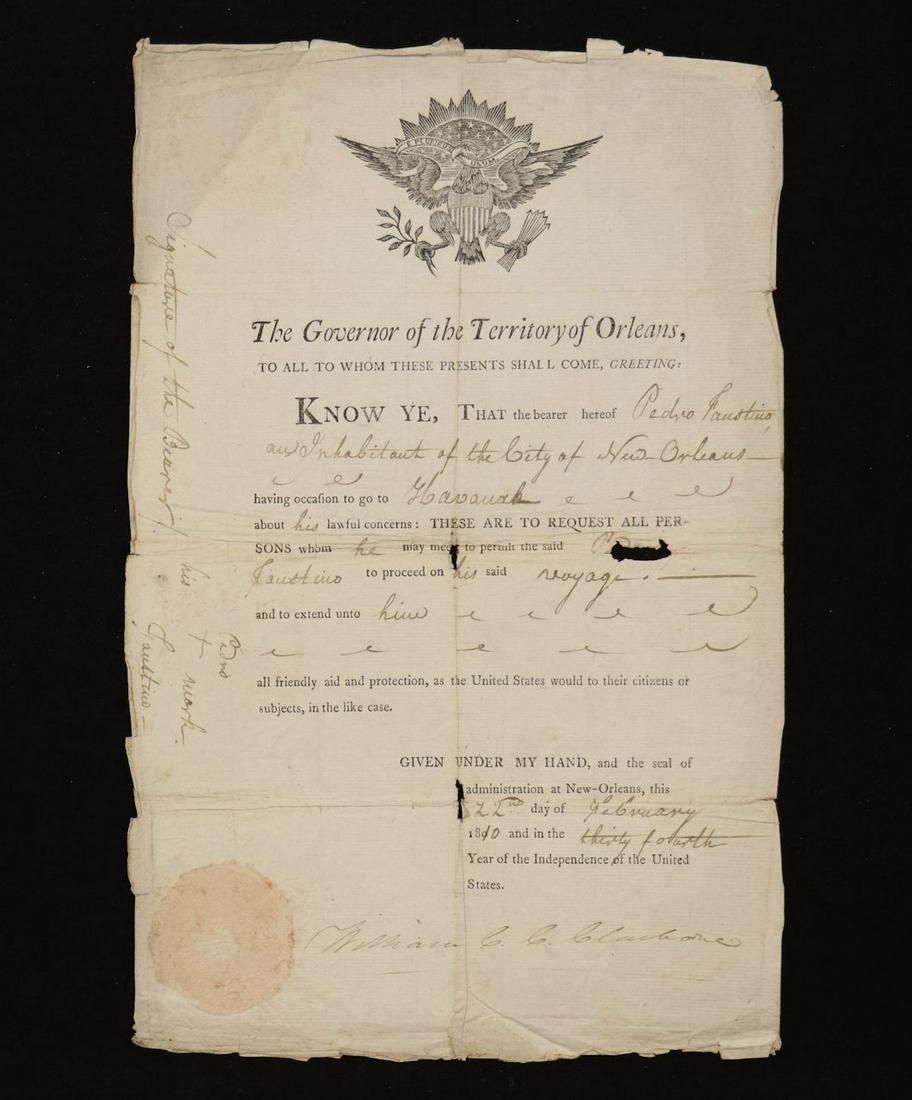 E PLURIBUS UNUM
The Governor of the Territory of Orleans,
TO ALL TO WHOM THESE PRESENTS SHALL COME, GREETING:
KNOW YE, THAT the bearer hereof Pedro Faustino,
an Inhabitant of the City of New-Orleans
having occasion to go to Havanah
about his lawful concerns: THESE ARE TO REQUEST ALL PER-
SONS whom he may meet to permit the said Pedro
Faustino to proceed on his said voyage.
and to extend unto him
all friendly aid and protection, as the United States would to their citizens or
subjects, in the like case.
GIVEN UNDER MY HAND, and the seal of
administration at New-Orleans, this
22nd day of February
1810 and in the thirty fourth
Year of the Independence of the United
States.
William C. C. Claiborne
Signature of the Bearer
his
Pedro + Faustino
mark.